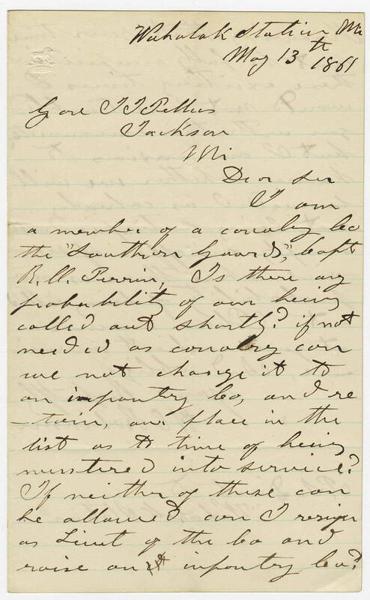 Wahalak Station Mi
May 13th 1861
Gov J J Pettus
Jackson
Mi
Dear Sir
I am
a member of a cavalry co
the "Southern Guards," Capt
R. O. Perrin, Is there any
probability of our being
called out shortly? if not
needed as cavalry can
we not change it to
an infantry co, and re
-tain, our place in the
list as to time of being
mustered into service?
If neither of these can
be allowed can I resign
as Lieut of the co and
raise an infantry co?